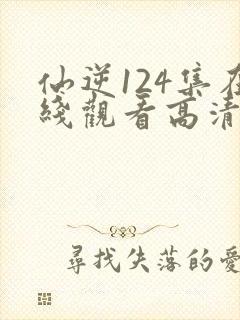 仙逆124集在
綫觀看高清
尋找失落的愛